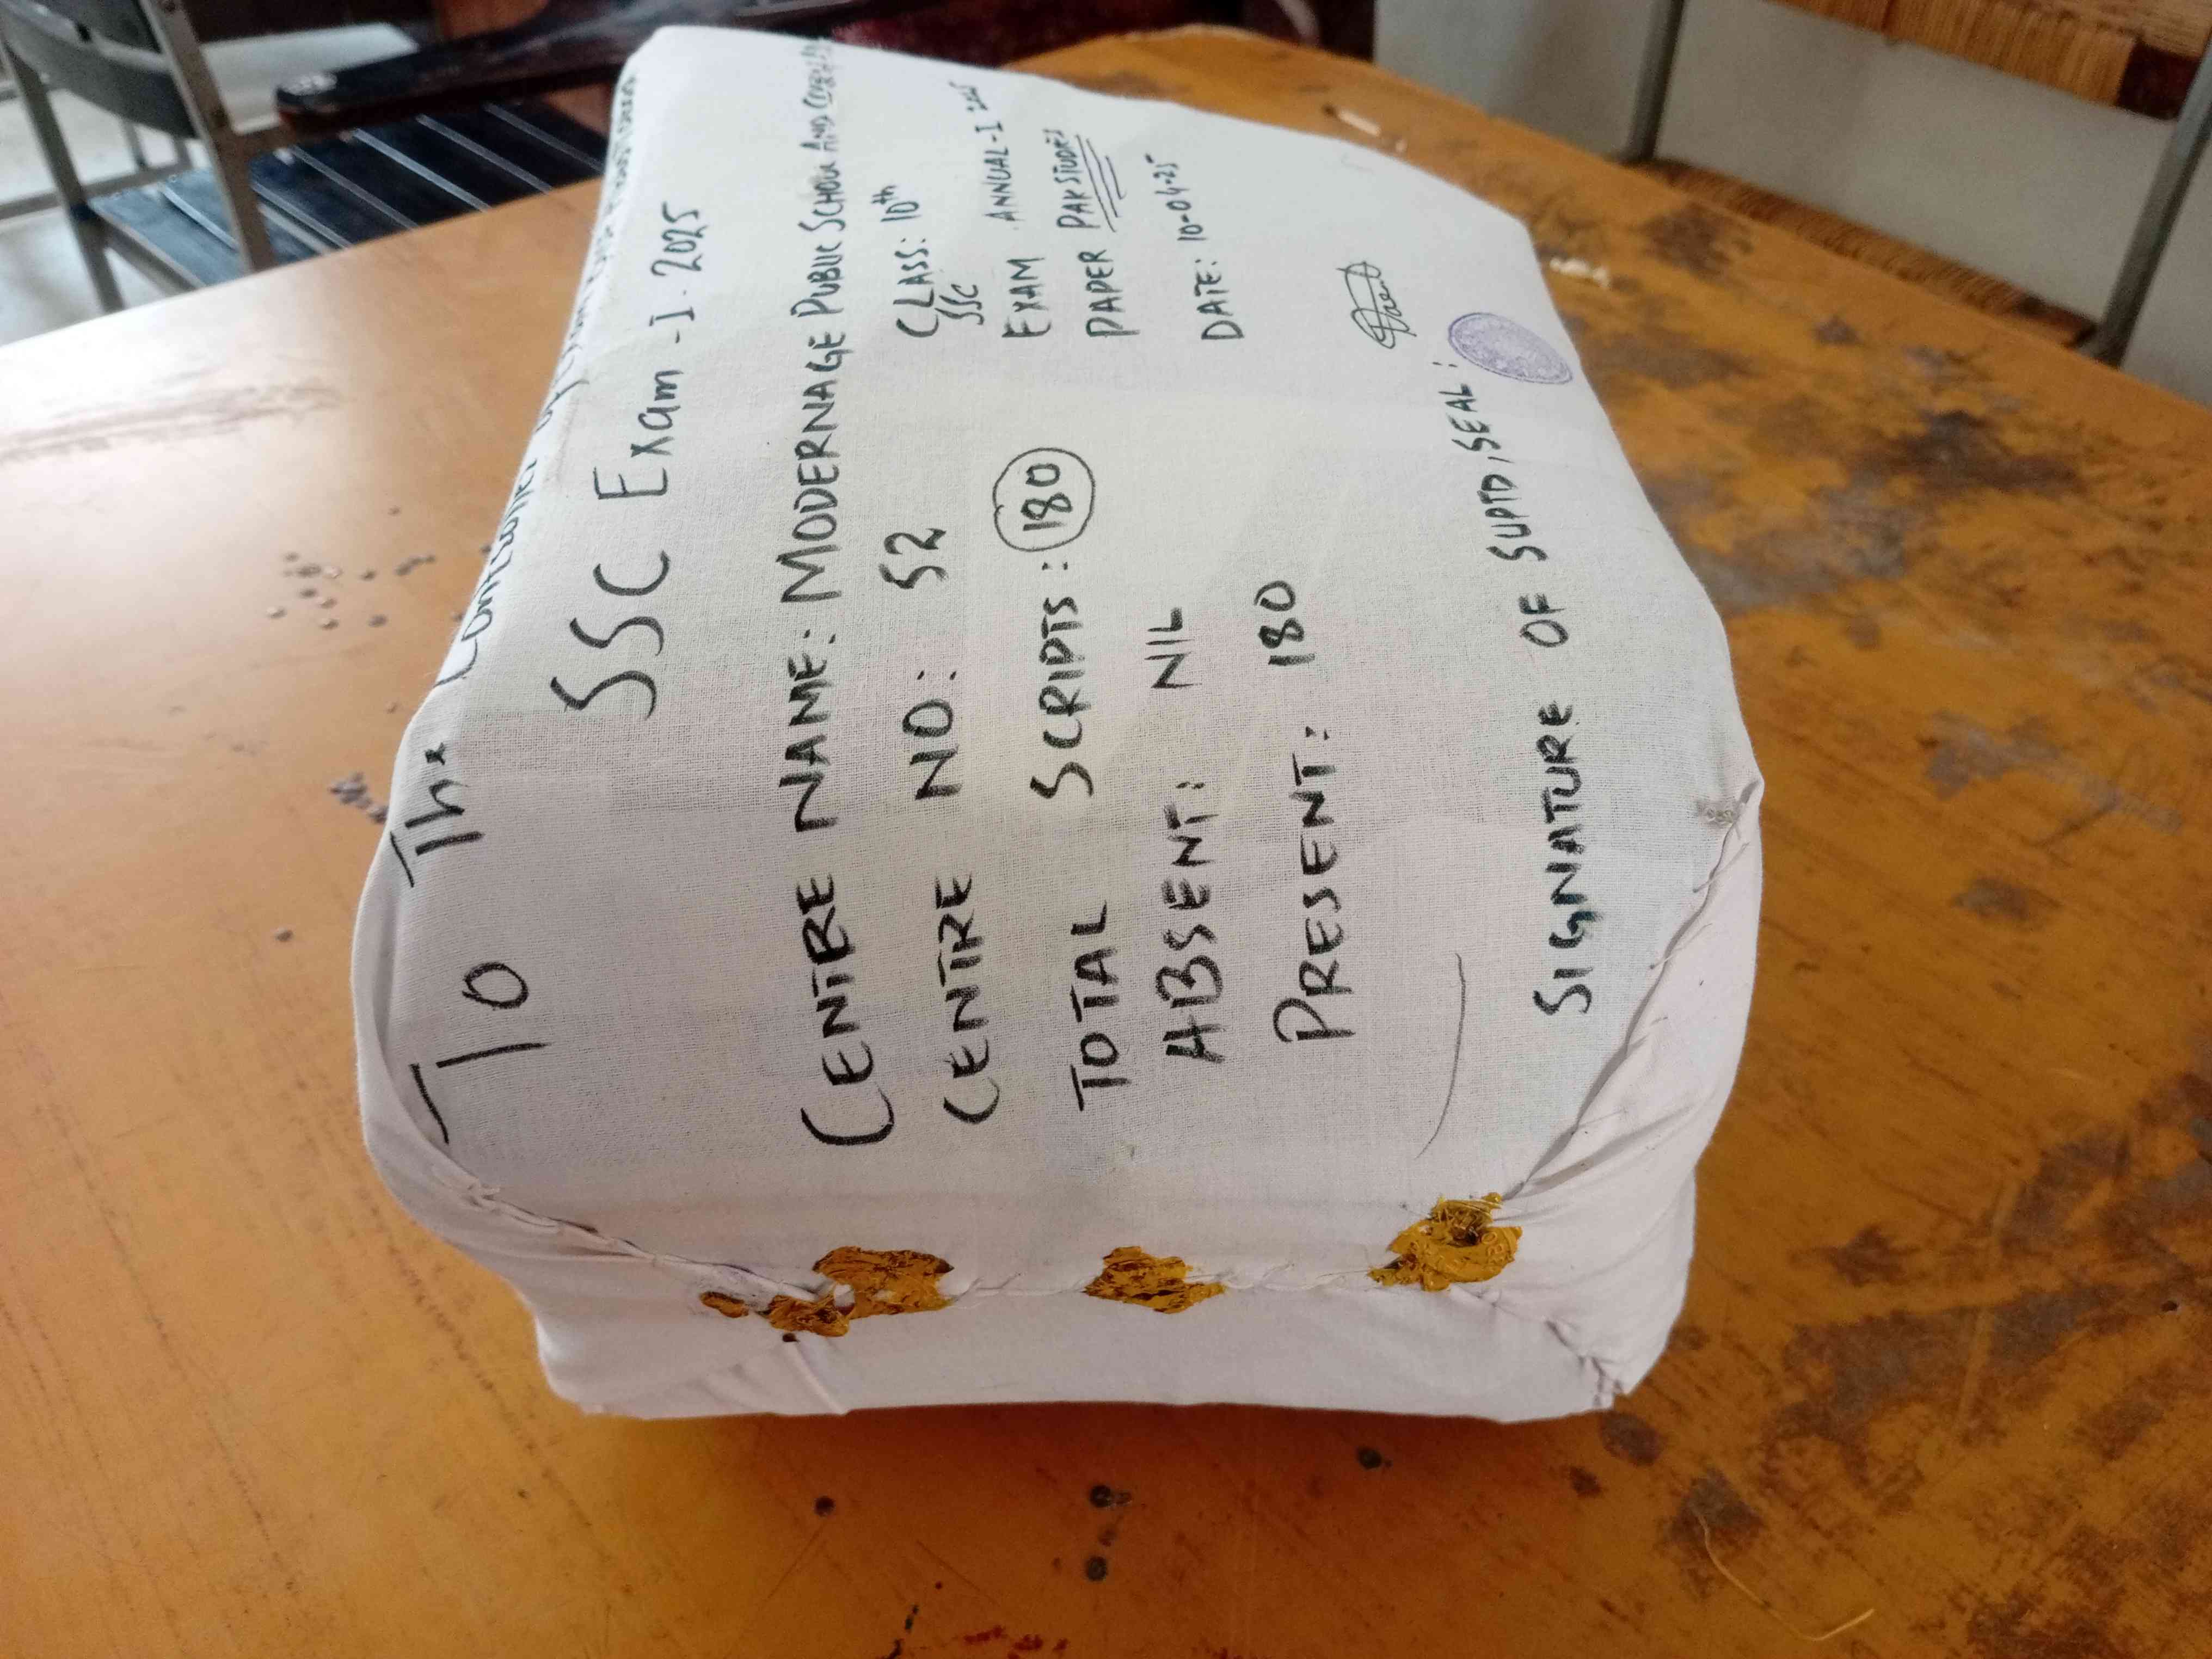 To The Controller of
SSC Exam-I-2025
CENTRE NAME: MODERNAGE PUBLIC SCHOOL AND
CENTRE NO: 52
CLASS: 10th
SSC
TOTAL SCRIPTS: 180
EXAM ANNUAL-I 2025
ABSENT: NIL
PAPER PAK STUDIES
PRESENT: 180
DATE: 10-04-25
SIGNATURE OF SUPTD, SEAL: